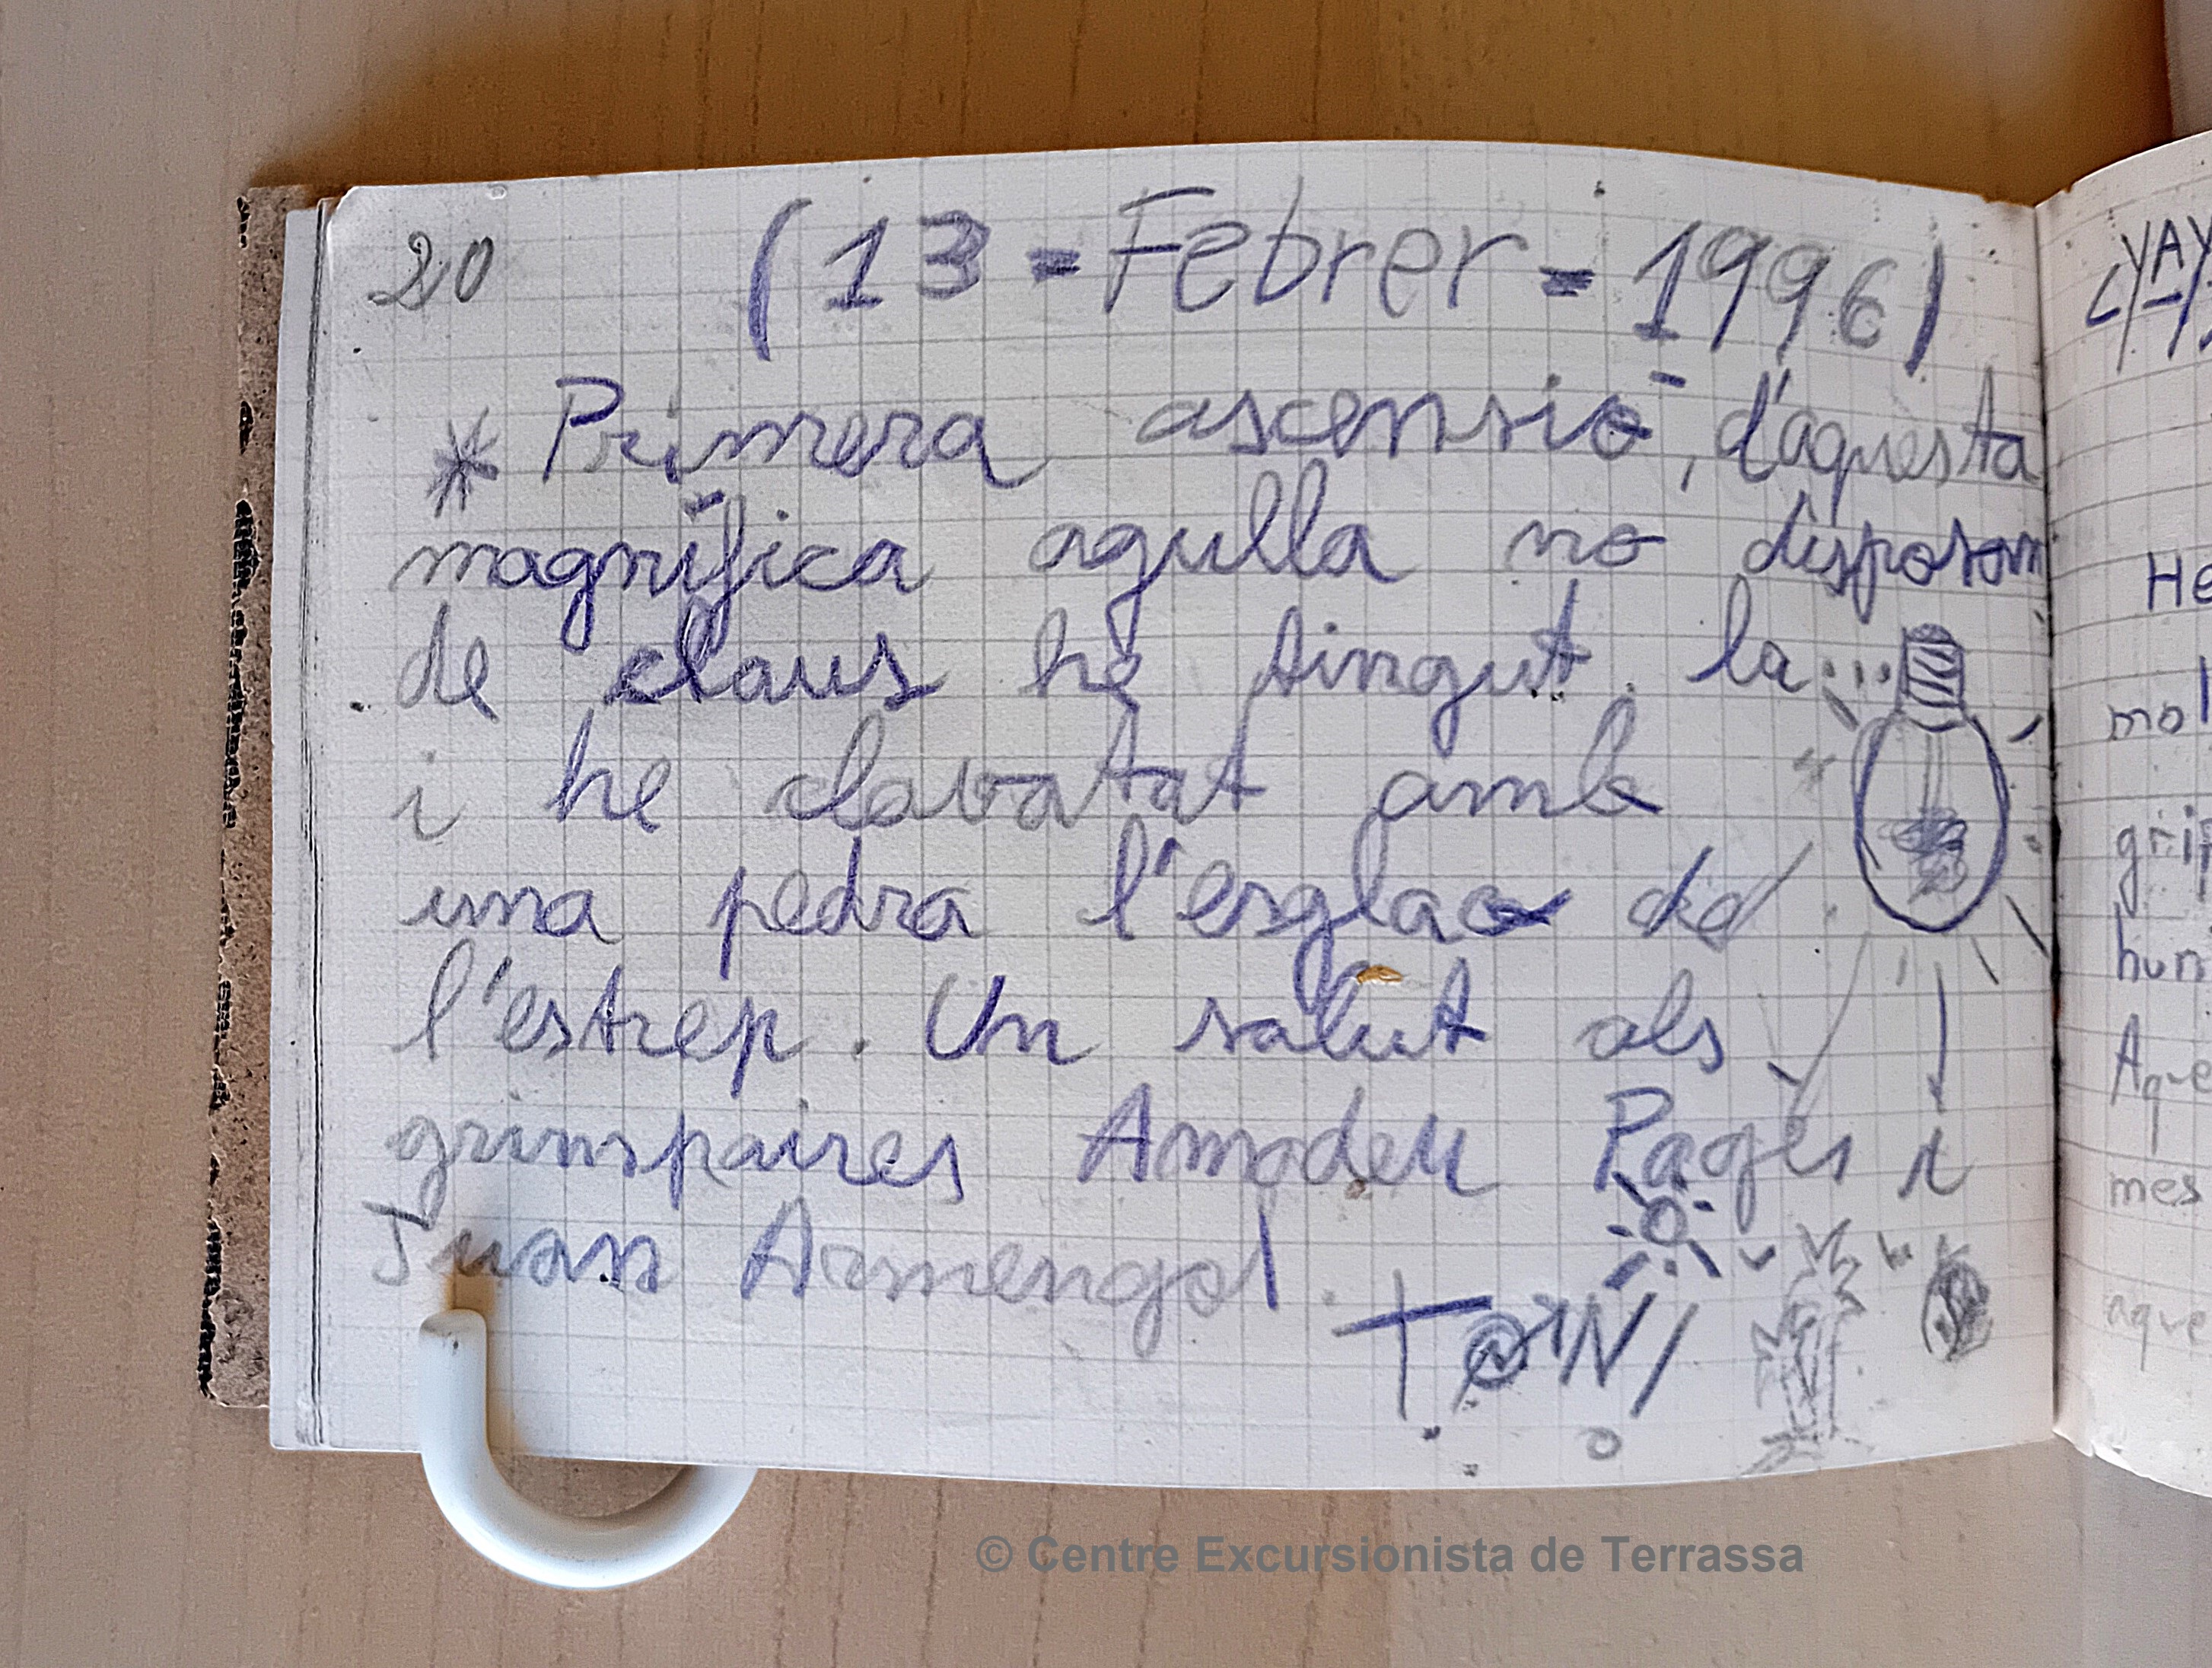 20
(13 = Febrer = 1996)
* Primera ascensió, d'aquesta
magnífica agulla no disposam
de claus he tingut la...
i he clavatat amb
una pedra l'esglao de
l'estrep. Un salut als
grimpaires Amadeu Pagès i
Juan Armengol.
T@NI
YAY
HE
mol
grip
hun
Aque
mes
aque
© Centre Excursionista de Terrassa